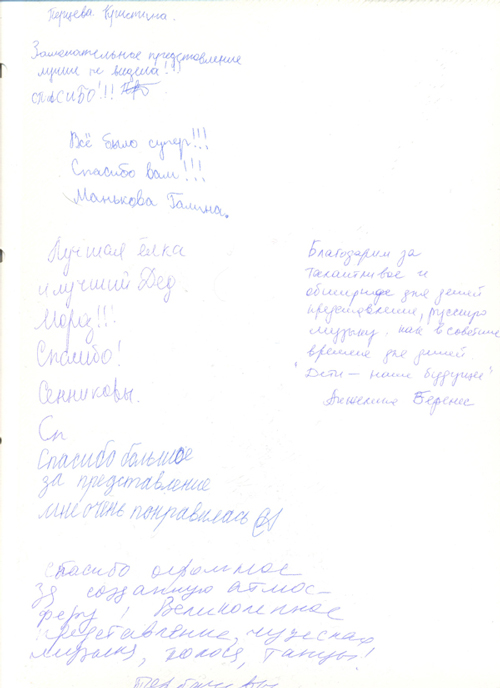 Перцева Кристина.
Замечательное представление
лучше не видела!!!
СПАСИБО!!!
Всё было супер!!!
Спасибо вам!!!
Манькова Галина.
Лучшая ёлка
и лучший Дед
Мороз!!!
Спасибо!
Сенниковы.
Сп
Спасибо большое
за представление
мне очень понравилась
Благодарим за
талантливое и
для детей
представление, русскую
музыку. как в советское
время для детей.
"Дети – наше будущее"
Анжелика
Спасибо огромное
за созданную атмос-
феру! Великолепное
представление, чудесная
музыка, голоса, танцы!